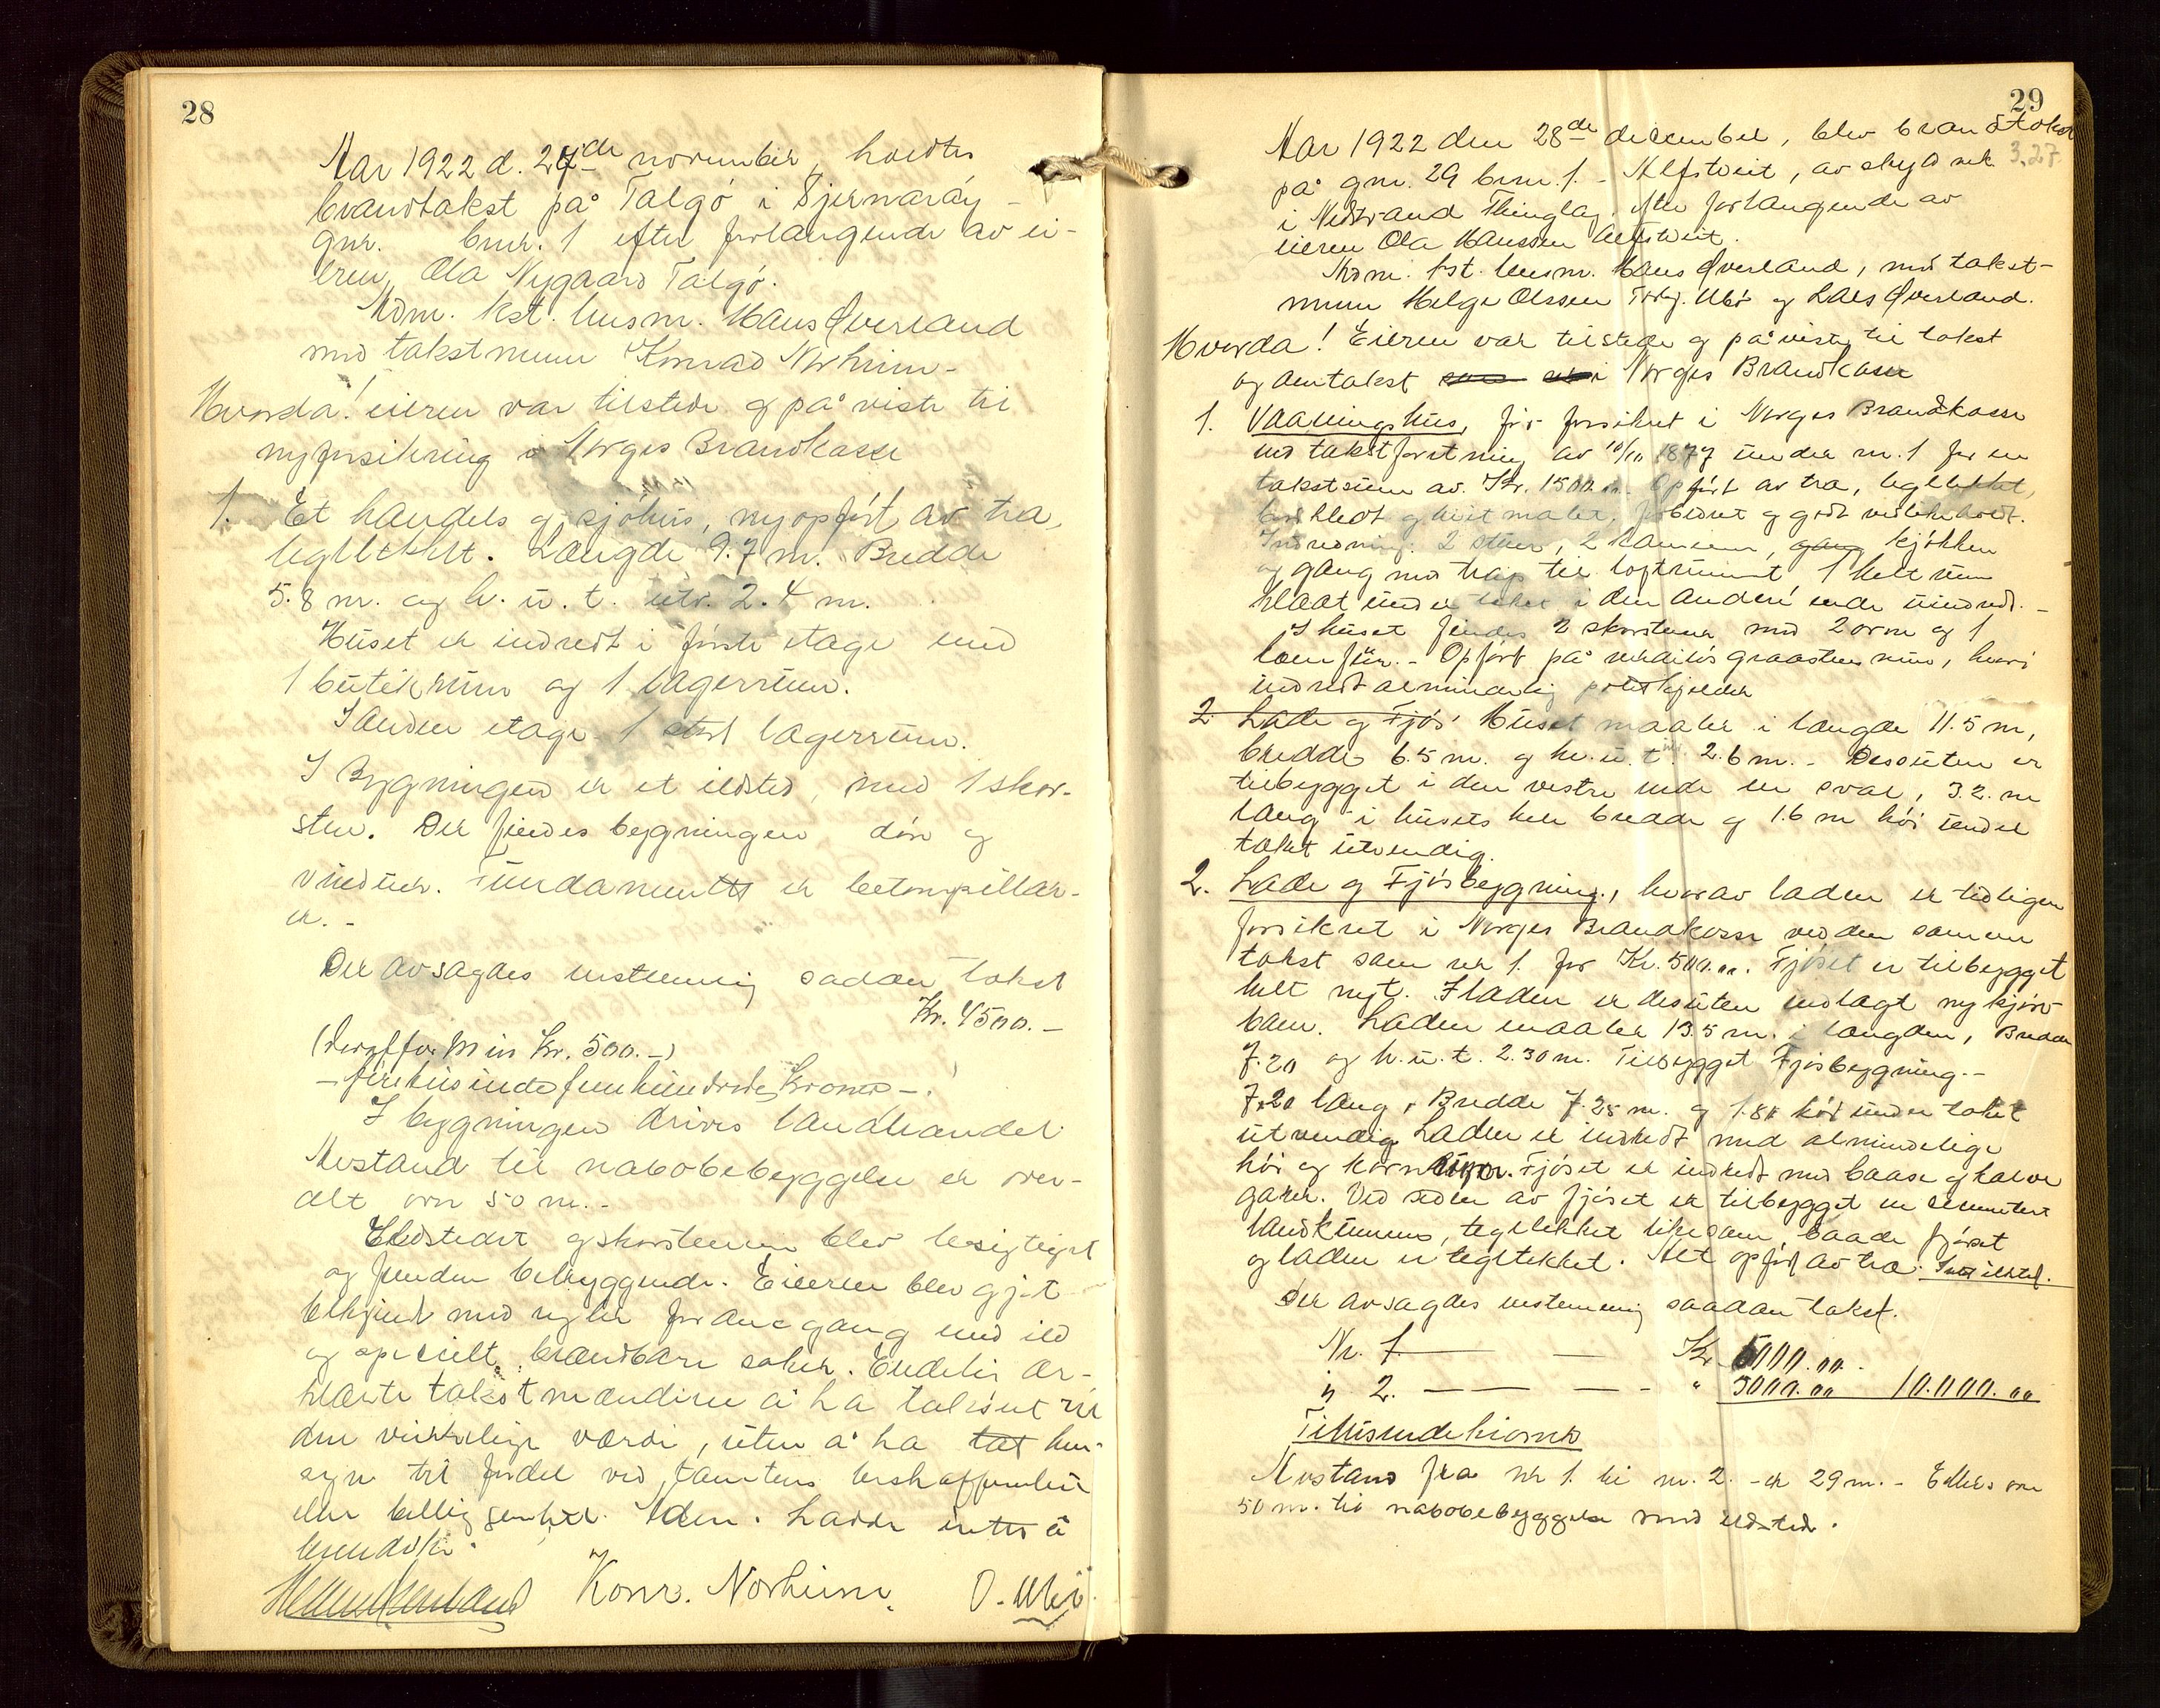 28
Aar 1922 d. 24de november, holdtes
brandtakst på Talgö i Sjernaröy -
gnr. bnr. 1 efter forlangende av ei-
eren, Ola Nygaard Talgö.
Adm. kst. lensm. Hans Øverland
med takstmenn Konrad Norheim -
Hvorda! eieren var tilstede og på viste til
nyforsikring i Norges Brandkasse
1. Et handels og sjöhus, nyopfört av træ,
tegltekket. Længde 9.7 m. Bredde
5.8 m. og h. u. t. utv. 2.4 m.
Huset er indredt i förste etage med
1 butikrum og 1 lagerrum.
I anden etage 1 stort lagerrum.
I Bygningen er et ildsted, med 1 skor-
sten. Der findes bygningen dör og
vinduer. Fundamentet er betonpillar-
er. -
Der avsagdes enstemmig sadan takst
Kr. 4500. -
( Kr. 500. - )
- firetusindefemhundrede Kroner - !
I bygningen drives landhandel
Avstand til nabobebyggelse er over-
alt over 50 m. -
Ildstedet og skorstenen blev besigtiget
og funden betryggende. Eieren blev gjort
bekjent med regler for omgang med ild
og specielt brændbare saker. Endelig er-
klærte takstmændene å ha taksert til
den virkelige værdi, uten å ha tat hen-
syn til fordel ved tomtens beskaffenhet
eller beliggenhet. Iden. hadde intet å
bemerke.
Hans Øverland Konr. Norheim. O. Ubö
29
Aar 1922 den 28de december, blev brandtakst
3.27
på gnr. 29 bnr. 1. - Alfstveit, av skyld mk.
i Nedstrand Thinglag, efter forlangende av
eieren Ola Hanssen Alfstveit.
Adm. kst. lensm. Hans Øverland, med takst-
menn Helge Olssen Ubö og Lars Øverland.
Hvorda! Eieren var tilstede og påviste til takst
og omtakst i Norges Brandkasse
1. Vaaningshus, för forsikret i Norges Brandkasse
ved takstforretning av 10/10 1877 under nr. 1 for en
takstsum av Kr. 1500.00. Opfört av træ, tegltekket,
bordklædt og hvit malet, forbedret og godt vedlikeholdt.
Indredning: 2 stuer, 2 kammer, gang kjökken
og gang med trap til loftrummet, 1 helt rum
klaat under taket i den anden ende uindredt. -
I huset findes 2 skorstener med 2 ovne og 1
komfür. - Opfört på værdilös graastens mur, hvori
indredt almindelig potetkjelder
2 Lade og Fjös. Huset maaler i længde 11.5 m,
bredde 6.5 m. og h. u. t. 2.6 m. - Desuten er
tilbygget i den vestre ende en sval, 3.2. m
lang i husets hele bredde og 1.6 m höi under
taket utvendig.
2. Lade og Fjösbygning, hvorav laden er tidligere
forsikret i Norges Brandkasse ved den samme
takst som nr 1. for Kr. 500.00. Fjöset er tilbygget
helt nyt. I laden er desuten indlagt ny kjöre-
bane. Laden maaler 13.5 m. i længden, Bredde
7.20 og h. u. t. 2.30 m. Tilbygget Fjösbygning. -
7.20 lang, Bredde 7.25 m. og 1.80 höi under taket
utvendig. Laden er indredt med almindelige
höi og kornrum. Fjöset er indredt med baase og kalve
garer. Ved siden av fjöset er tilbygget en cementert
landkumme, tegltekket likesom, baade fjöset
og laden er tegltekket. Alt opfört av træ. Intet ildsted.
Der avsagdes enstemmig saadan takst.
Nr. 1. — — Kr. 5000.00.
" 2. — — — " 5000.00 10.000.00
Titusindekroner
Avstand fra nr 1. til nr. 2. - er 29 m. - Ellers over
50 m. til nabobebyggelse med ildsted.